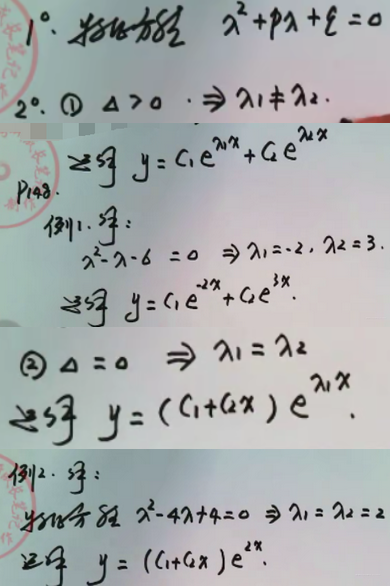 1°. 特征方程 λ²+pλ+q=0
2°. ① Δ>0 ⇒ λ₁≠λ₂.
通解 y=C₁e^{λ₁x}+C₂e^{λ₂x}
P148.
例1. 解:
λ²-λ-6=0 ⇒ λ₁=-2, λ₂=3.
通解 y=C₁e^{-2x}+C₂e^{3x}.
② Δ=0 ⇒ λ₁=λ₂
通解 y=(C₁+C₂x)e^{λ₁x}.
例2. 解:
特征方程 λ²-4λ+4=0 ⇒ λ₁=λ₂=2
通解 y=(C₁+C₂x)e^{2x}.